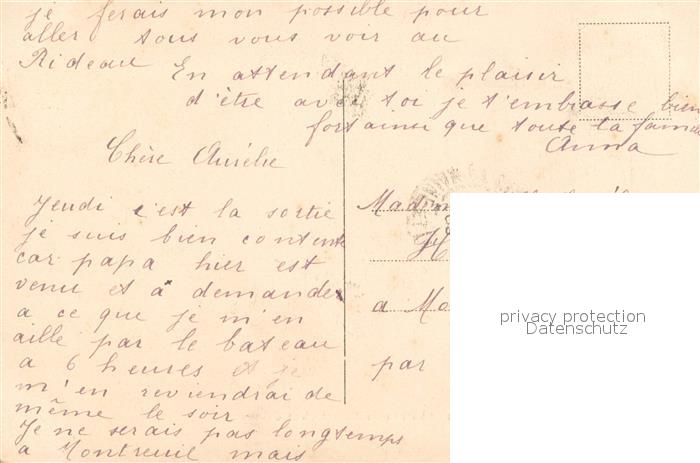 Chère Aurélie
Jeudi c'est la sortie
je suis bien contente
car papa hier est
venu et a demander
a ce que je m'en
aille par le bateau
a 6 heures et je
m'en reviendrai de
même le soir
Je ne serais pas longtemps
a Montreuil mais
je ferais mon possible pour
aller tous vous voir au
Rideau
En attendant le plaisir
d'être avec toi je t'embrasse bien
fort ainsi que toute la famille
Anna
a
par
privacy protection
Datenschutz